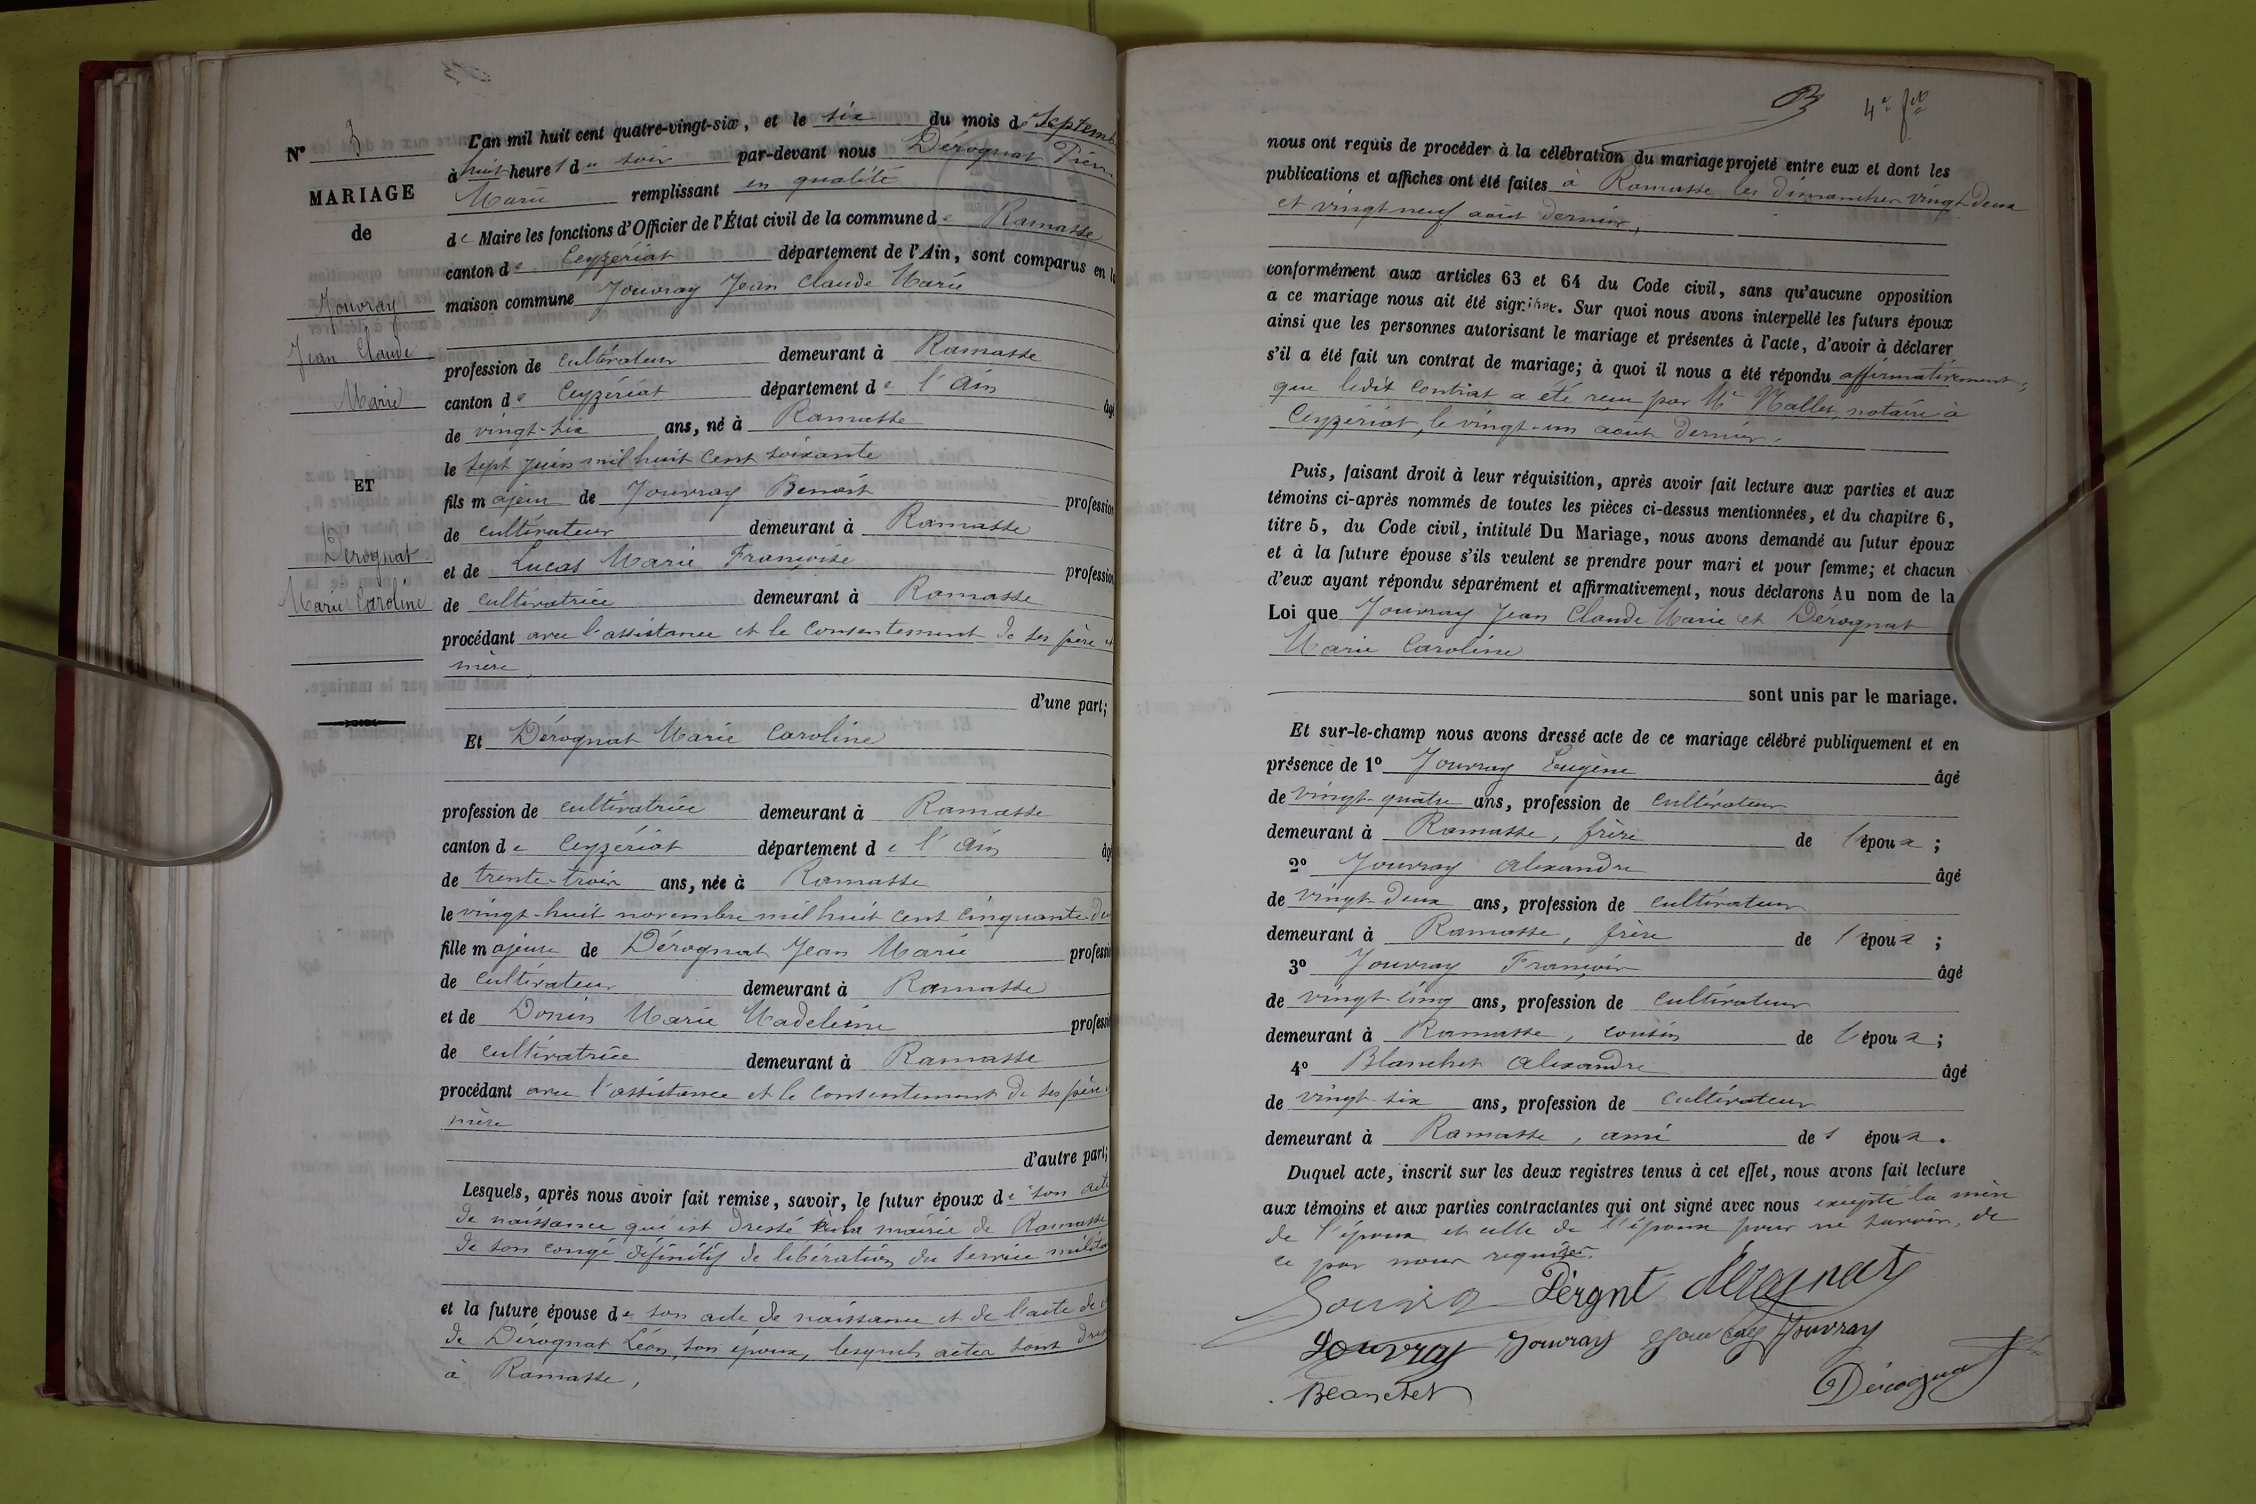 N° 3
MARIAGE
de
Jouvray
Jean Claude
Marie
ET
Dérognat
Marie Caroline
L'an mil huit cent quatre-vingt-six, et le six du mois de Septemb
à huit heures du soir par-devant nous Dérognat Pierr
Marie remplissant en qualité
de Maire les fonctions d'Officier de l'État civil de la commune de Ramasse
canton de Ceyzériat département de l'Ain, sont comparus en la
maison commune Jouvray Jean Claude Marie
profession de cultivateur demeurant à Ramasse
canton de Ceyzériat département de l'Ain âgé
de vingt-six ans, né à Ramasse
le sept juin mil huit cent soixante
fils majeur de Jouvray Benoît profession
de cultivateur demeurant à Ramasse
et de Lucas Marie Françoise profession
de cultivatrice demeurant à Ramasse
procédant avec l'assistance et le consentement de ses père et
mère
d'une part;
Et Dérognat Marie Caroline
profession de cultivatrice demeurant à Ramasse
canton de Ceyzériat département de l'Ain âgé
de trente-trois ans, née à Ramasse
le vingt-huit novembre mil huit cent cinquante-deu
fille majeure de Dérognat Jean Marie professi
de cultivateur demeurant à Ramasse
et de Donin Marie Madeleine professi
de cultivatrice demeurant à Ramasse
procédant avec l'assistance et le consentement de ses père e
mère
d'autre part;
Lesquels, après nous avoir fait remise, savoir, le futur époux de son acte
de naissance qui est dressé à la mairie de Ramasse
de son congé définitif de libération du service milita
et la future épouse de son acte de naissance et de l'acte de
de Dérognat Léon, son époux, lesquels actes sont dres
à Ramasse,
4e ft
nous ont requis de procéder à la célébration du mariage projeté entre eux et dont les
publications et affiches ont été faites à Ramasse les dimanches vingt-deux
et vingt neuf août dernier,
conformément aux articles 63 et 64 du Code civil, sans qu'aucune opposition
a ce mariage nous ait été signifiée. Sur quoi nous avons interpellé les futurs époux
ainsi que les personnes autorisant le mariage et présentes à l'acte, d'avoir à déclarer
s'il a été fait un contrat de mariage; à quoi il nous a été répondu affirmativement;
que ledit contrat a été reçu par Me Mallet, notaire à
Ceyzériat, le vingt-un août dernier.
Puis, faisant droit à leur réquisition, après avoir fait lecture aux parties et aux
témoins ci-après nommés de toutes les pièces ci-dessus mentionnées, et du chapitre 6,
titre 5, du Code civil, intitulé Du Mariage, nous avons demandé au futur époux
et à la future épouse s'ils veulent se prendre pour mari et pour femme; et chacun
d'eux ayant répondu séparément et affirmativement, nous déclarons Au nom de la
Loi que Jouvray Jean Claude Marie et Dérognat
Marie Caroline
sont unis par le mariage.
Et sur-le-champ nous avons dressé acte de ce mariage célébré publiquement et en
présence de 1° Jouvray Eugène âgé
de vingt-quatre ans, profession de cultivateur
demeurant à Ramasse, frère de l'époux;
2° Jouvray Alexandre âgé
de vingt-deux ans, profession de cultivateur
demeurant à Ramasse, frère de l'époux;
3° Jouvray François âgé
de vingt-cinq ans, profession de cultivateur
demeurant à Ramasse, cousin de l'époux;
4° Blanchet Alexandre âgé
de vingt-six ans, profession de cultivateur
demeurant à Ramasse, ami de l'époux.
Duquel acte, inscrit sur les deux registres tenus à cet effet, nous avons fait lecture
aux témoins et aux parties contractantes qui ont signé avec nous excepté la mère
de l'époux et celle de l'épouse pour ne savoir, de
ce par nous requises.
Jouvray Dérgnt dérognat
Jouvray Jouvray Jouvray Jouvray
Blanchet Dérognat